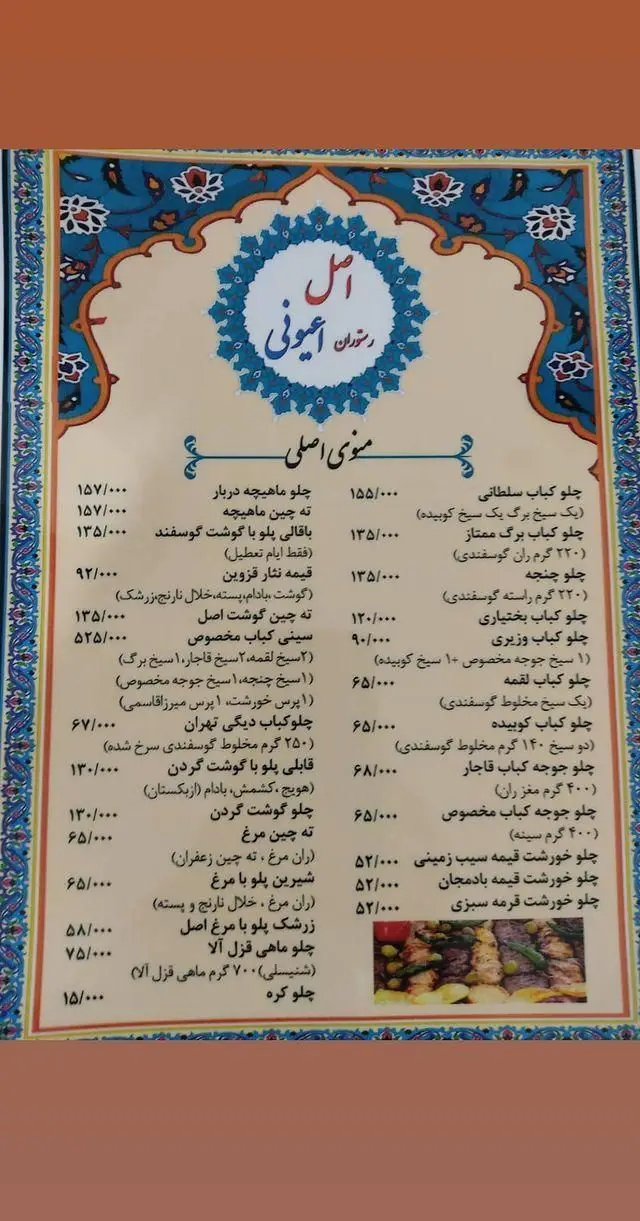 اصل
رستوران اعیونی
منوی اصلی
چلو کباب سلطانی ۱۵۵/۰۰۰
(یک سیخ برگ یک سیخ کوبیده)
چلو کباب برگ ممتاز ۱۳۵/۰۰۰
(۲۲۰ گرم ران گوسفندی)
چلو چنجه ۱۳۵/۰۰۰
(۲۲۰ گرم راسته گوسفندی)
چلو کباب بختیاری ۱۲۰/۰۰۰
چلو کباب وزیری ۹۰/۰۰۰
(۱ سیخ جوجه مخصوص +۱ سیخ کوبیده)
چلو کباب لقمه ۶۵/۰۰۰
(یک سیخ مخلوط گوسفندی)
چلو کباب کوبیده ۶۵/۰۰۰
(دو سیخ ۱۴۰ گرم مخلوط گوسفندی)
چلو جوجه کباب قاجار ۶۸/۰۰۰
(۴۰۰ گرم مغز ران)
چلو جوجه کباب مخصوص ۶۵/۰۰۰
(۴۰۰ گرم سینه)
چلو خورشت قیمه سیب زمینی ۵۲/۰۰۰
چلو خورشت قیمه بادمجان ۵۲/۰۰۰
چلو خورشت قرمه سبزی ۵۲/۰۰۰
چلو ماهیچه دربار ۱۵۷/۰۰۰
ته چین ماهیچه ۱۵۷/۰۰۰
باقالی پلو با گوشت گوسفند ۱۳۵/۰۰۰
(فقط ایام تعطیل)
قیمه نثار قزوین ۹۲/۰۰۰
(گوشت ،بادام،پسته،خلال نارنج،زرشک)
ته چین گوشت اصل ۱۳۵/۰۰۰
سینی کباب مخصوص ۵۲۵/۰۰۰
(۲سیخ لقمه،۲سیخ قاجار،۱سیخ برگ)
(۱سیخ چنجه،۱سیخ جوجه مخصوص)
(۱پرس خورشت، ۱پرس میرزاقاسمی)
چلوکباب دیگی تهران ۶۷/۰۰۰
(۲۵۰ گرم مخلوط گوسفندی سرخ شده)
قابلی پلو با گوشت گردن ۱۳۰/۰۰۰
(هویج ،کشمش، بادام (ازبکستان)
چلو گوشت گردن ۱۳۰/۰۰۰
ته چین مرغ ۶۵/۰۰۰
(ران مرغ ، ته چین زعفران)
شیرین پلو با مرغ ۶۵/۰۰۰
(ران مرغ ، خلال نارنج و پسته)
زرشک پلو با مرغ اصل ۵۸/۰۰۰
چلو ماهی قزل آلا ۷۵/۰۰۰
(شنیسلی)۷۰۰ گرم ماهی قزل آلا)
چلو کره ۱۵/۰۰۰